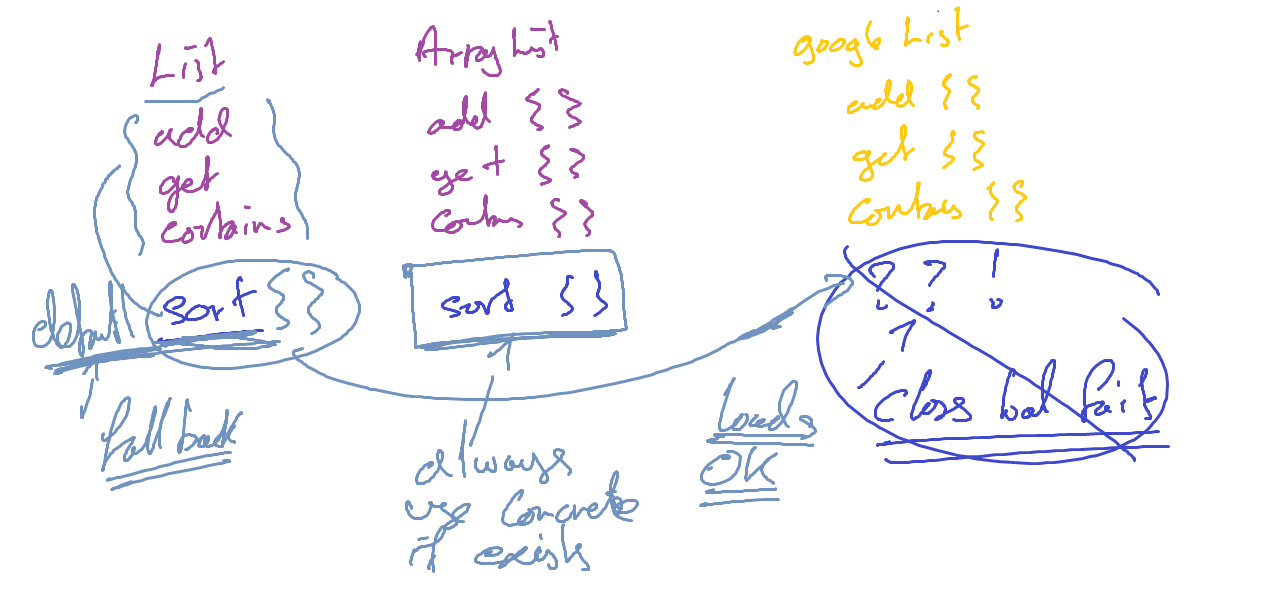 List
add
get
contains
default sort {}
fall back
ArrayList
add {}
get {}
contains {}
sort {}
always
use concrete
if exists
google List
add {}
get {}
contains {}
? ? !
class load fails
loads
OK